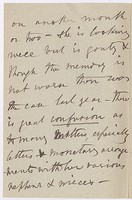 on another month
or two – she is looking
nice but is gouty &
though the memory is
not worse than was
the case last year – there
is great confusion as
to many matters especially
letters & monetary arrange
ments with her various
nephews & nieces –